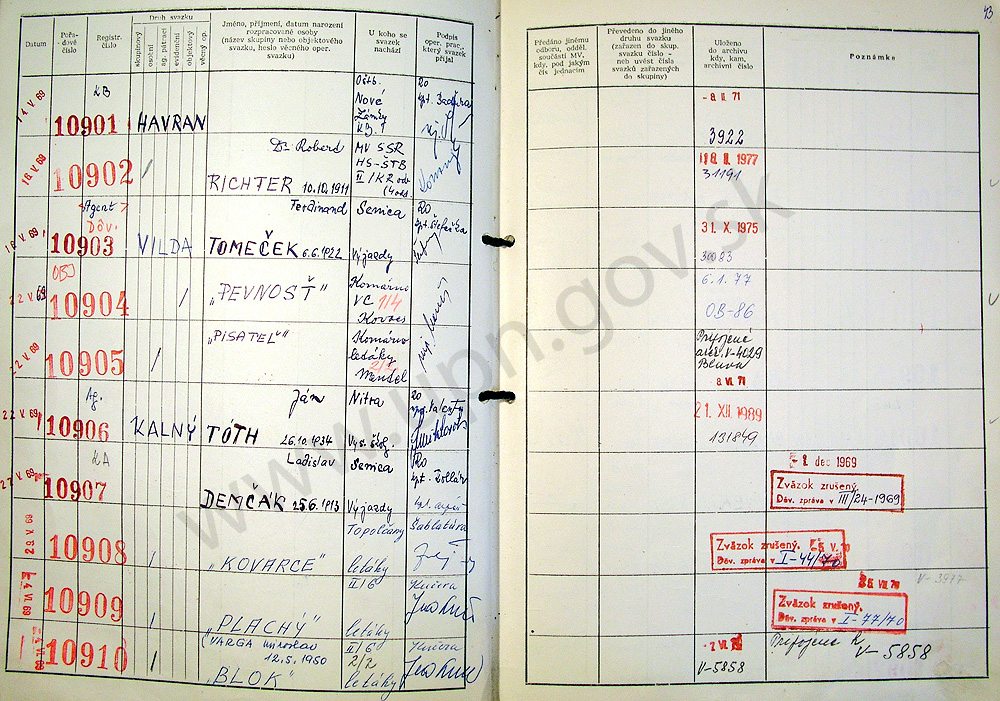 43
Datum
Pořa-
dové
číslo
Registr.
číslo
Druh svazku
skupinový
osobní
ag. pátrací
evidenční
objektový
věcný op.
Jméno, příjmení, datum narození
rozpracované osoby
(název skupiny nebo objektového
svazku, heslo věcného oper.
svazku)
U koho se
svazek
nachází
Podpis
oper. prac.,
který svazek
přijal
Předáno jinému
odboru, odděl.
součásti MV,
kdy, pod jakým
čís jednacím
Převedeno do jiného
druhu svazku
(zařazen do skup.
svazku číslo -
neb uvést čísla
svazků zařazených
do skupiny)
Uloženo
do archivu
kdy, kam,
archivní číslo
Poznámka
14 V 69
KB
10901
HAVRAN
Nové
Zámky
- 8 II 71
3922
19. V. 69
10902
Dr. Robert
RICHTER 10.10.1911
MV SSR
HS-ŠTB
II/KR odb
18 II 1977
31191
Agent
Dôv.
10903
VILDA
Ferdinand
TOMEČEK 6.6.1922
Senica
Výjazdy
31. X. 1975
30083
22 V. 69
OBJ
10904
"PEVNOSŤ"
Komárno
VC 1/4
Kovacs
6.1.77
OB-86
22 V. 69
10905
"PISATEĽ"
Komárno
letáky
Mendel
Pripojené
arch. V-4029
8 VI 71
22 V. 69
Ag.
10906
KALNÝ
Ján
TÓTH 26.10.1934
Nitra
21. XII. 1989
131849
27 V. 69
KA
10907
Ladislav
DEMČÁK 25.6.1913
Senica
Výjazdy
- 1. dec 1969
Zväzok zrušený.
Dôv. zpráva v III/24-1969
29. V. 69
10908
"KOVARCE"
Topoľčany
letáky
Šablatúra
Zväzok zrušený.
Dôv. zpráva v I-44/70
VI 69
10909
"PLACHÝ"
II/6
letáky
Kučera
V-3977
Zväzok zrušený.
Dôv. zpráva v I-77/70
10910
(VARGA Miroslav
12.5.1950
"BLOK"
II/6
2/2
letáky
Kučera
V-5858
Pripojené k
V-5858
www.upn.gov.sk